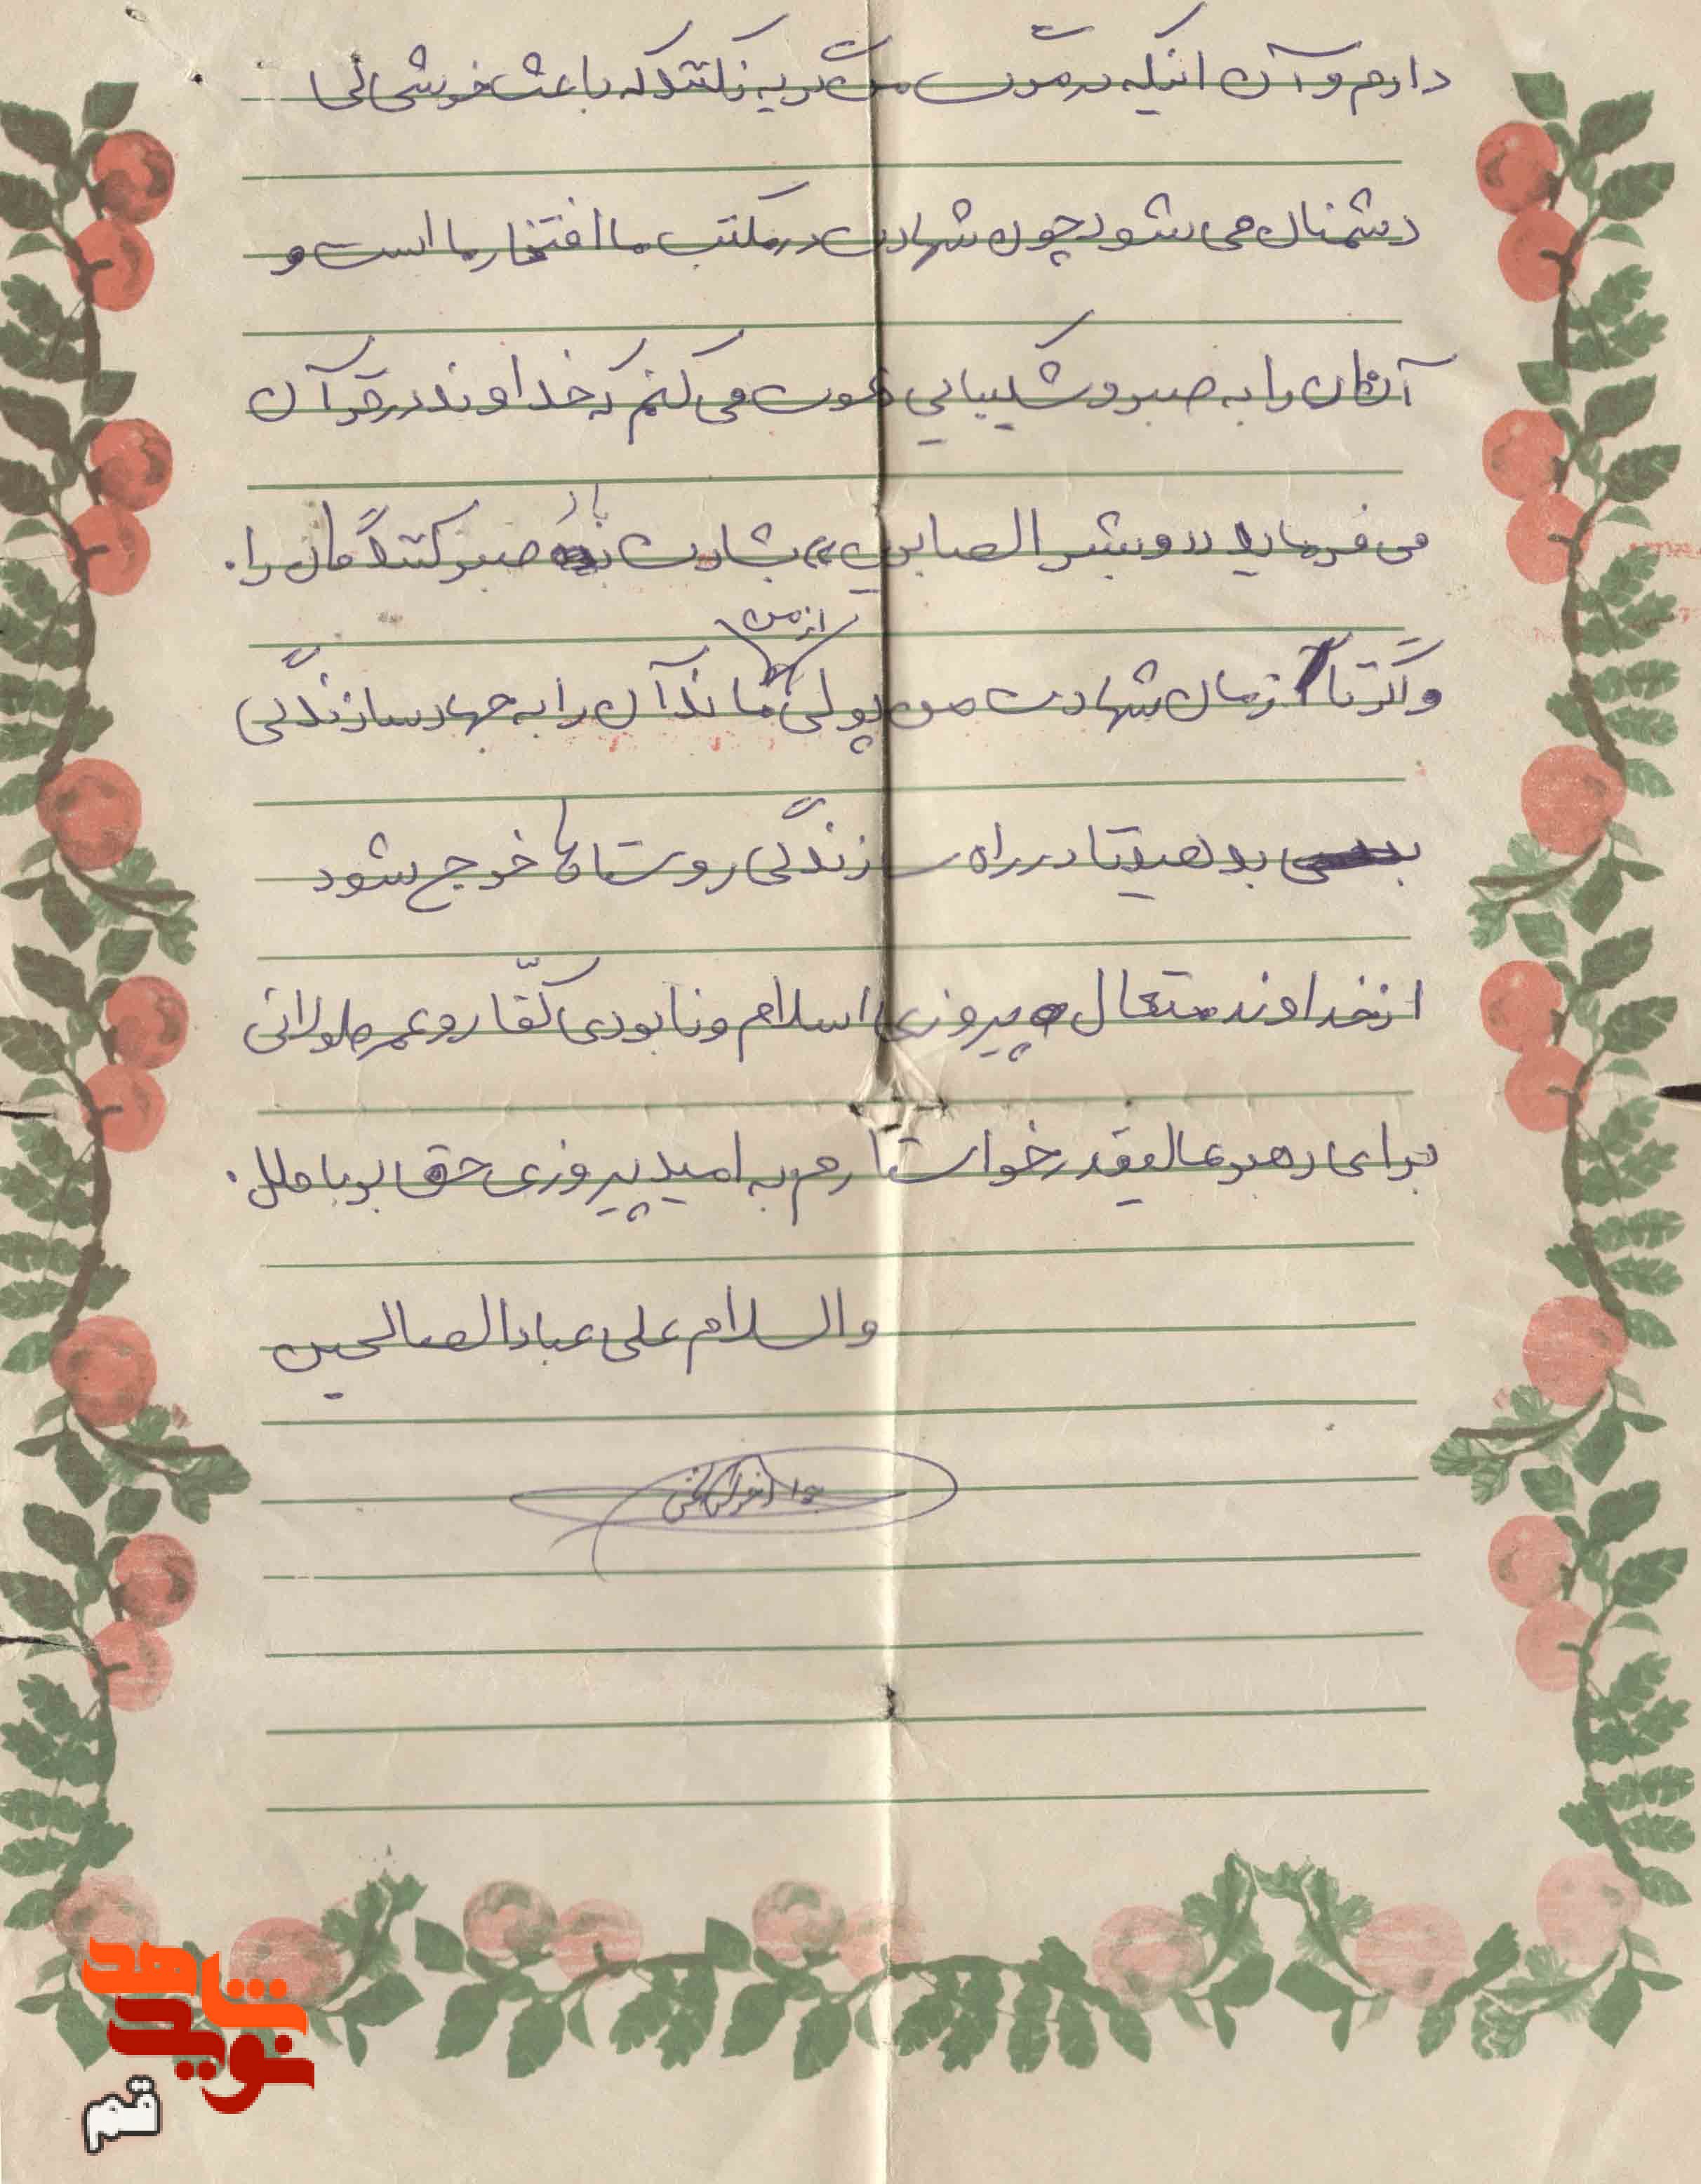 دارم و آن اینکه در مرگ من گریه نکنند که باعث خوشحالی
دشمنان می شود چون شهادت در مکتب ما افتخار ما است و
آنان را به صبر و شکیبایی دعوت می کنم که خداوند در قرآن
می فرماید «و بشر الصابرین» بشارت باد صبر کنندگان را.
از من
و اگر تا زمان شهادت من پولی ماند آن را به جهاد سازندگی
بدهید تا در راه سازندگی روستاها خرج شود
از خداوند متعال پیروزی اسلام و نابودی کفّار و عمر طولانی
برای رهبر عالیقدر خواستارم به امید پیروزی حق بر باطل.
والسلام علی عباد الصالحین
شاهد
نوید
قم